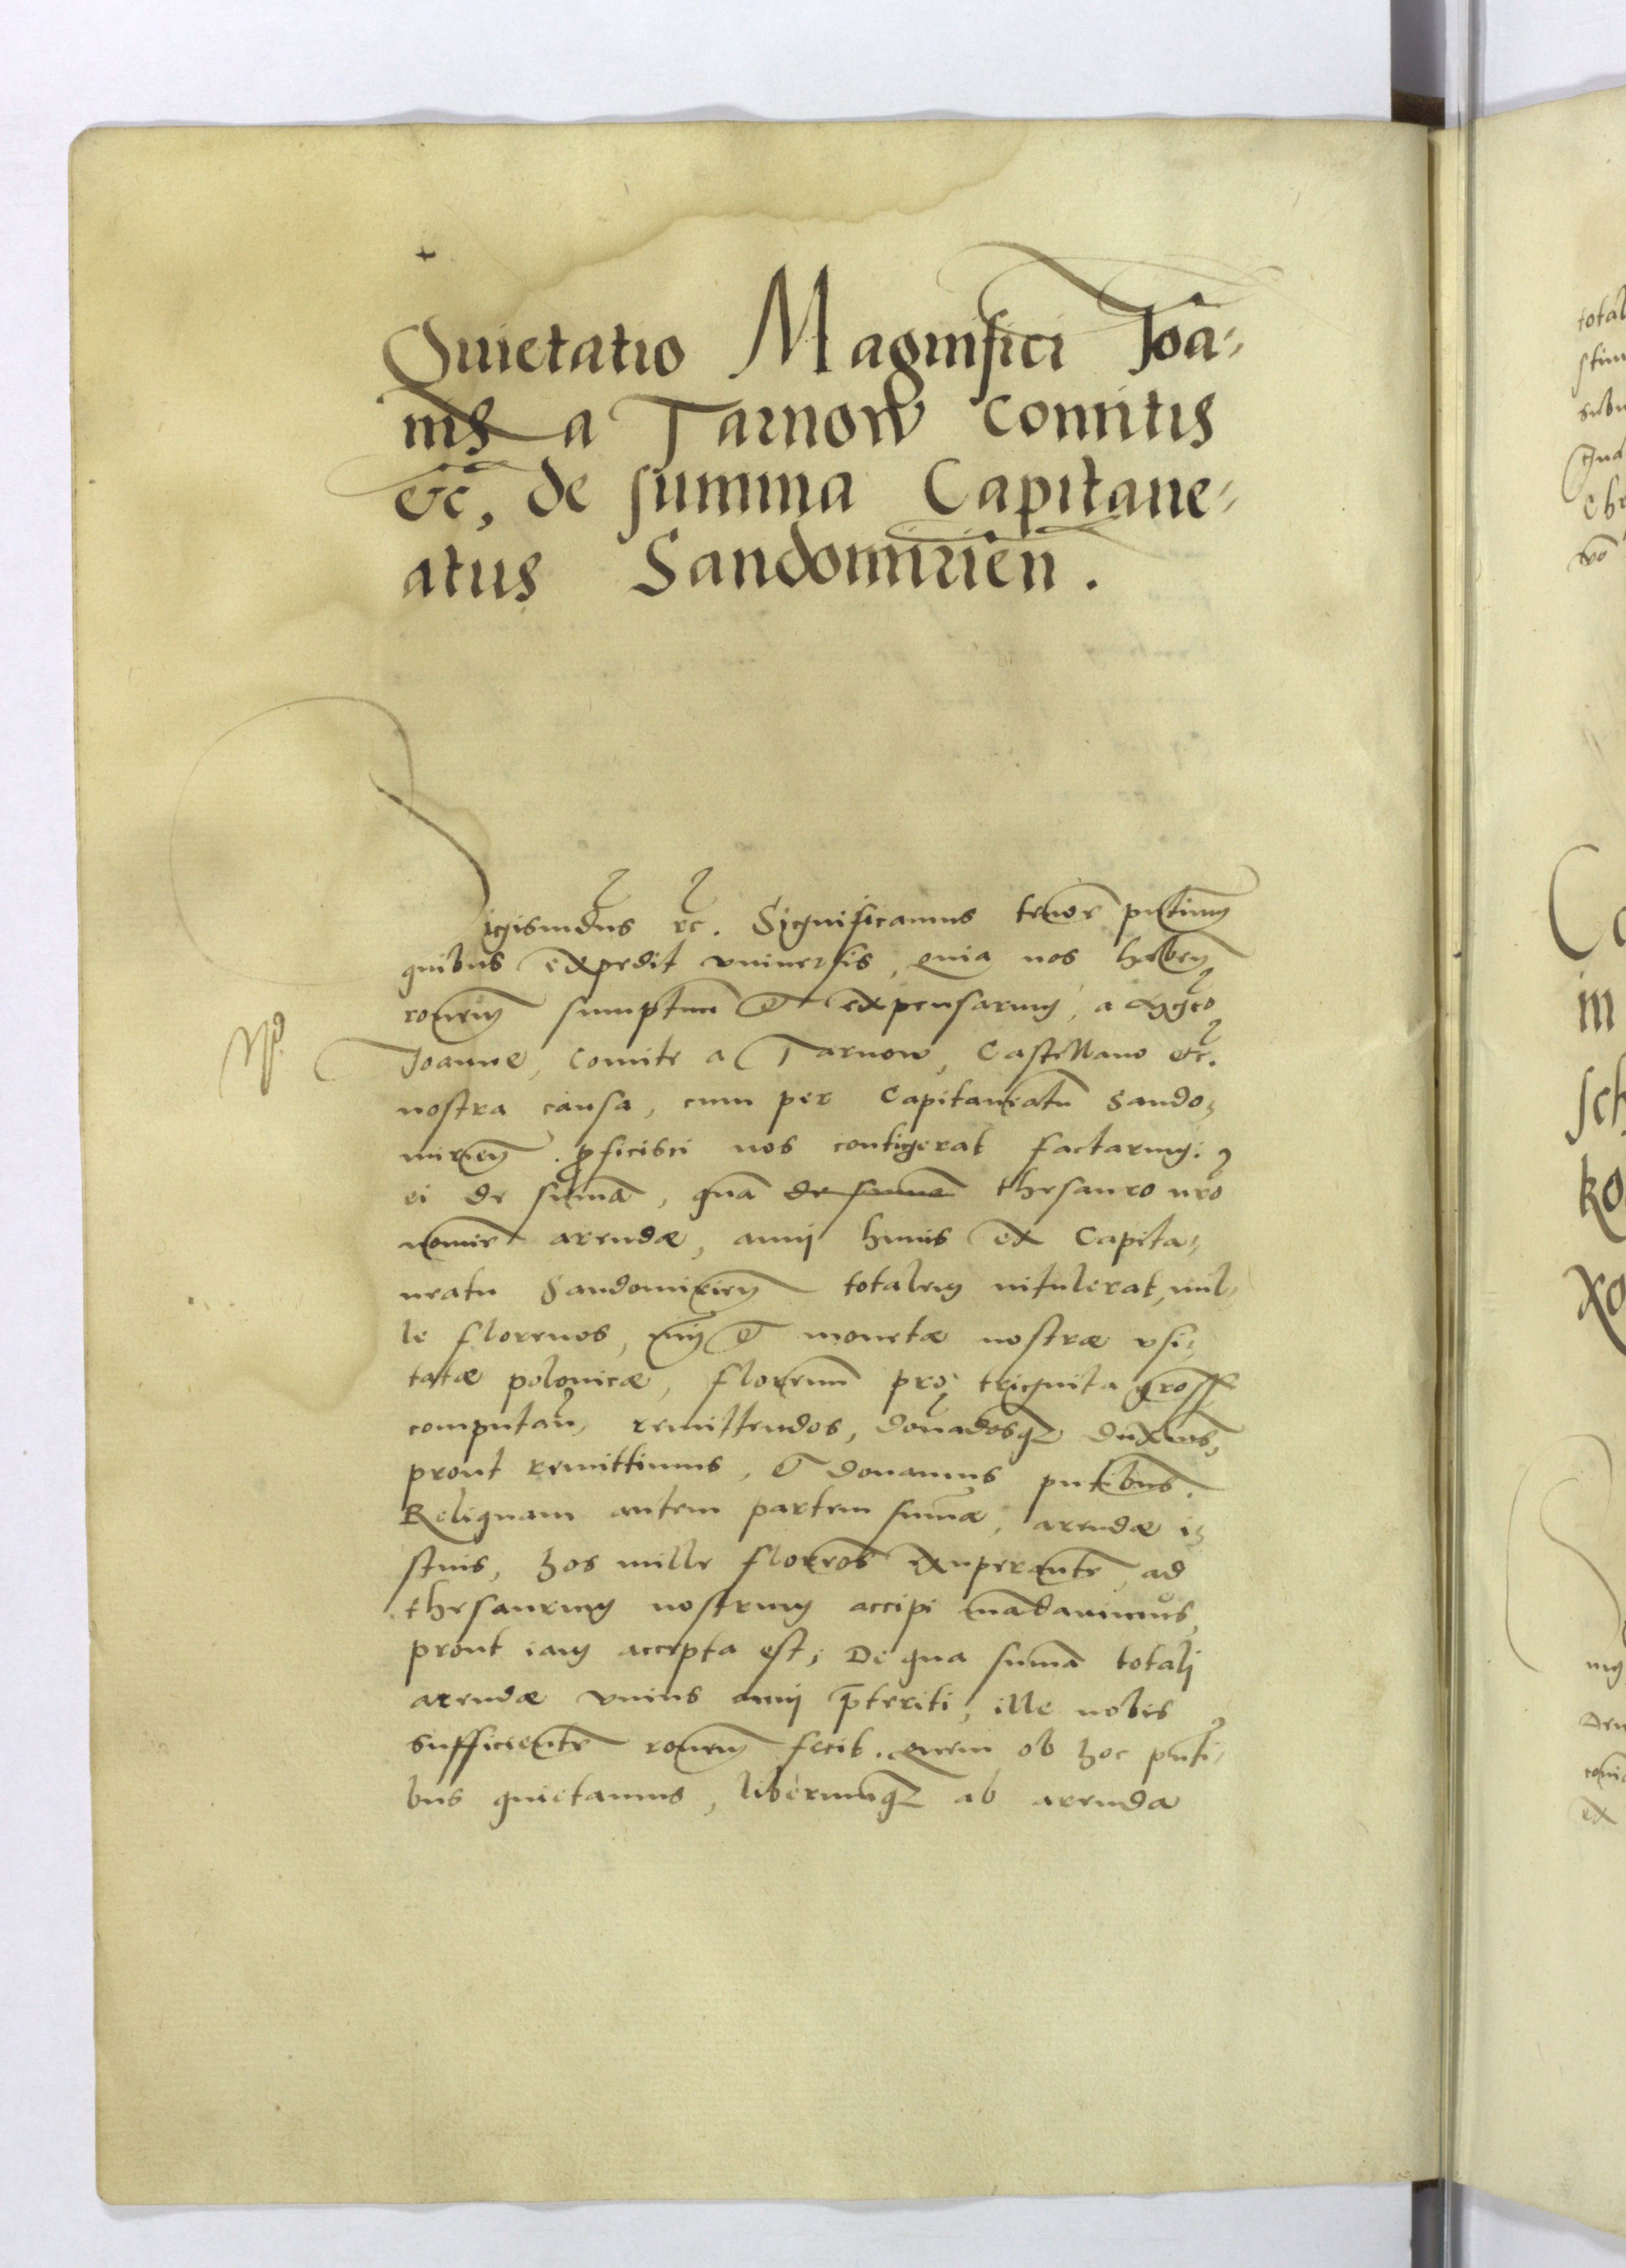 Quietatio Magnifici Joā-
nis a Tarnow Comitis
etc, de summa Capitane-
atus Sandomirien.
igismūdus etc. Significamus tenore pntium
quibus expedit vniuersis, quia nos haben
ronem sumptuū et expensarum, a Mgco
Joanne, Comite a Tarnow, Castellano etc.
nostra causa, cum per Capitaneatū Sando-
mirien. pficisci nos contigerat factarum:
ei de sumā, quā de sumā thesauro nro
nomine arendæ, anni huius ex Capita-
neatu Sandomirien totalem intulerat, mil-
le florenos, et monetæ nostræ vsi-
tatæ polonicæ, florenū pro triginta gross
computan, remittendos, donādosq duximus,
prout remittimus, et donamus pntibus.
Reliquam autem partem sumæ, arendæ i-
stius, hos mille florenos exuperantē, ad
thesaurum nostrum accipi mādauimus,
prout iam accepta est; De qua sumā totali
arendæ vnius anni pteriti, ille nobis
sufficientē ronem fecit. quem ob hoc pnti-
bus quietamus, liberumq ab arenda